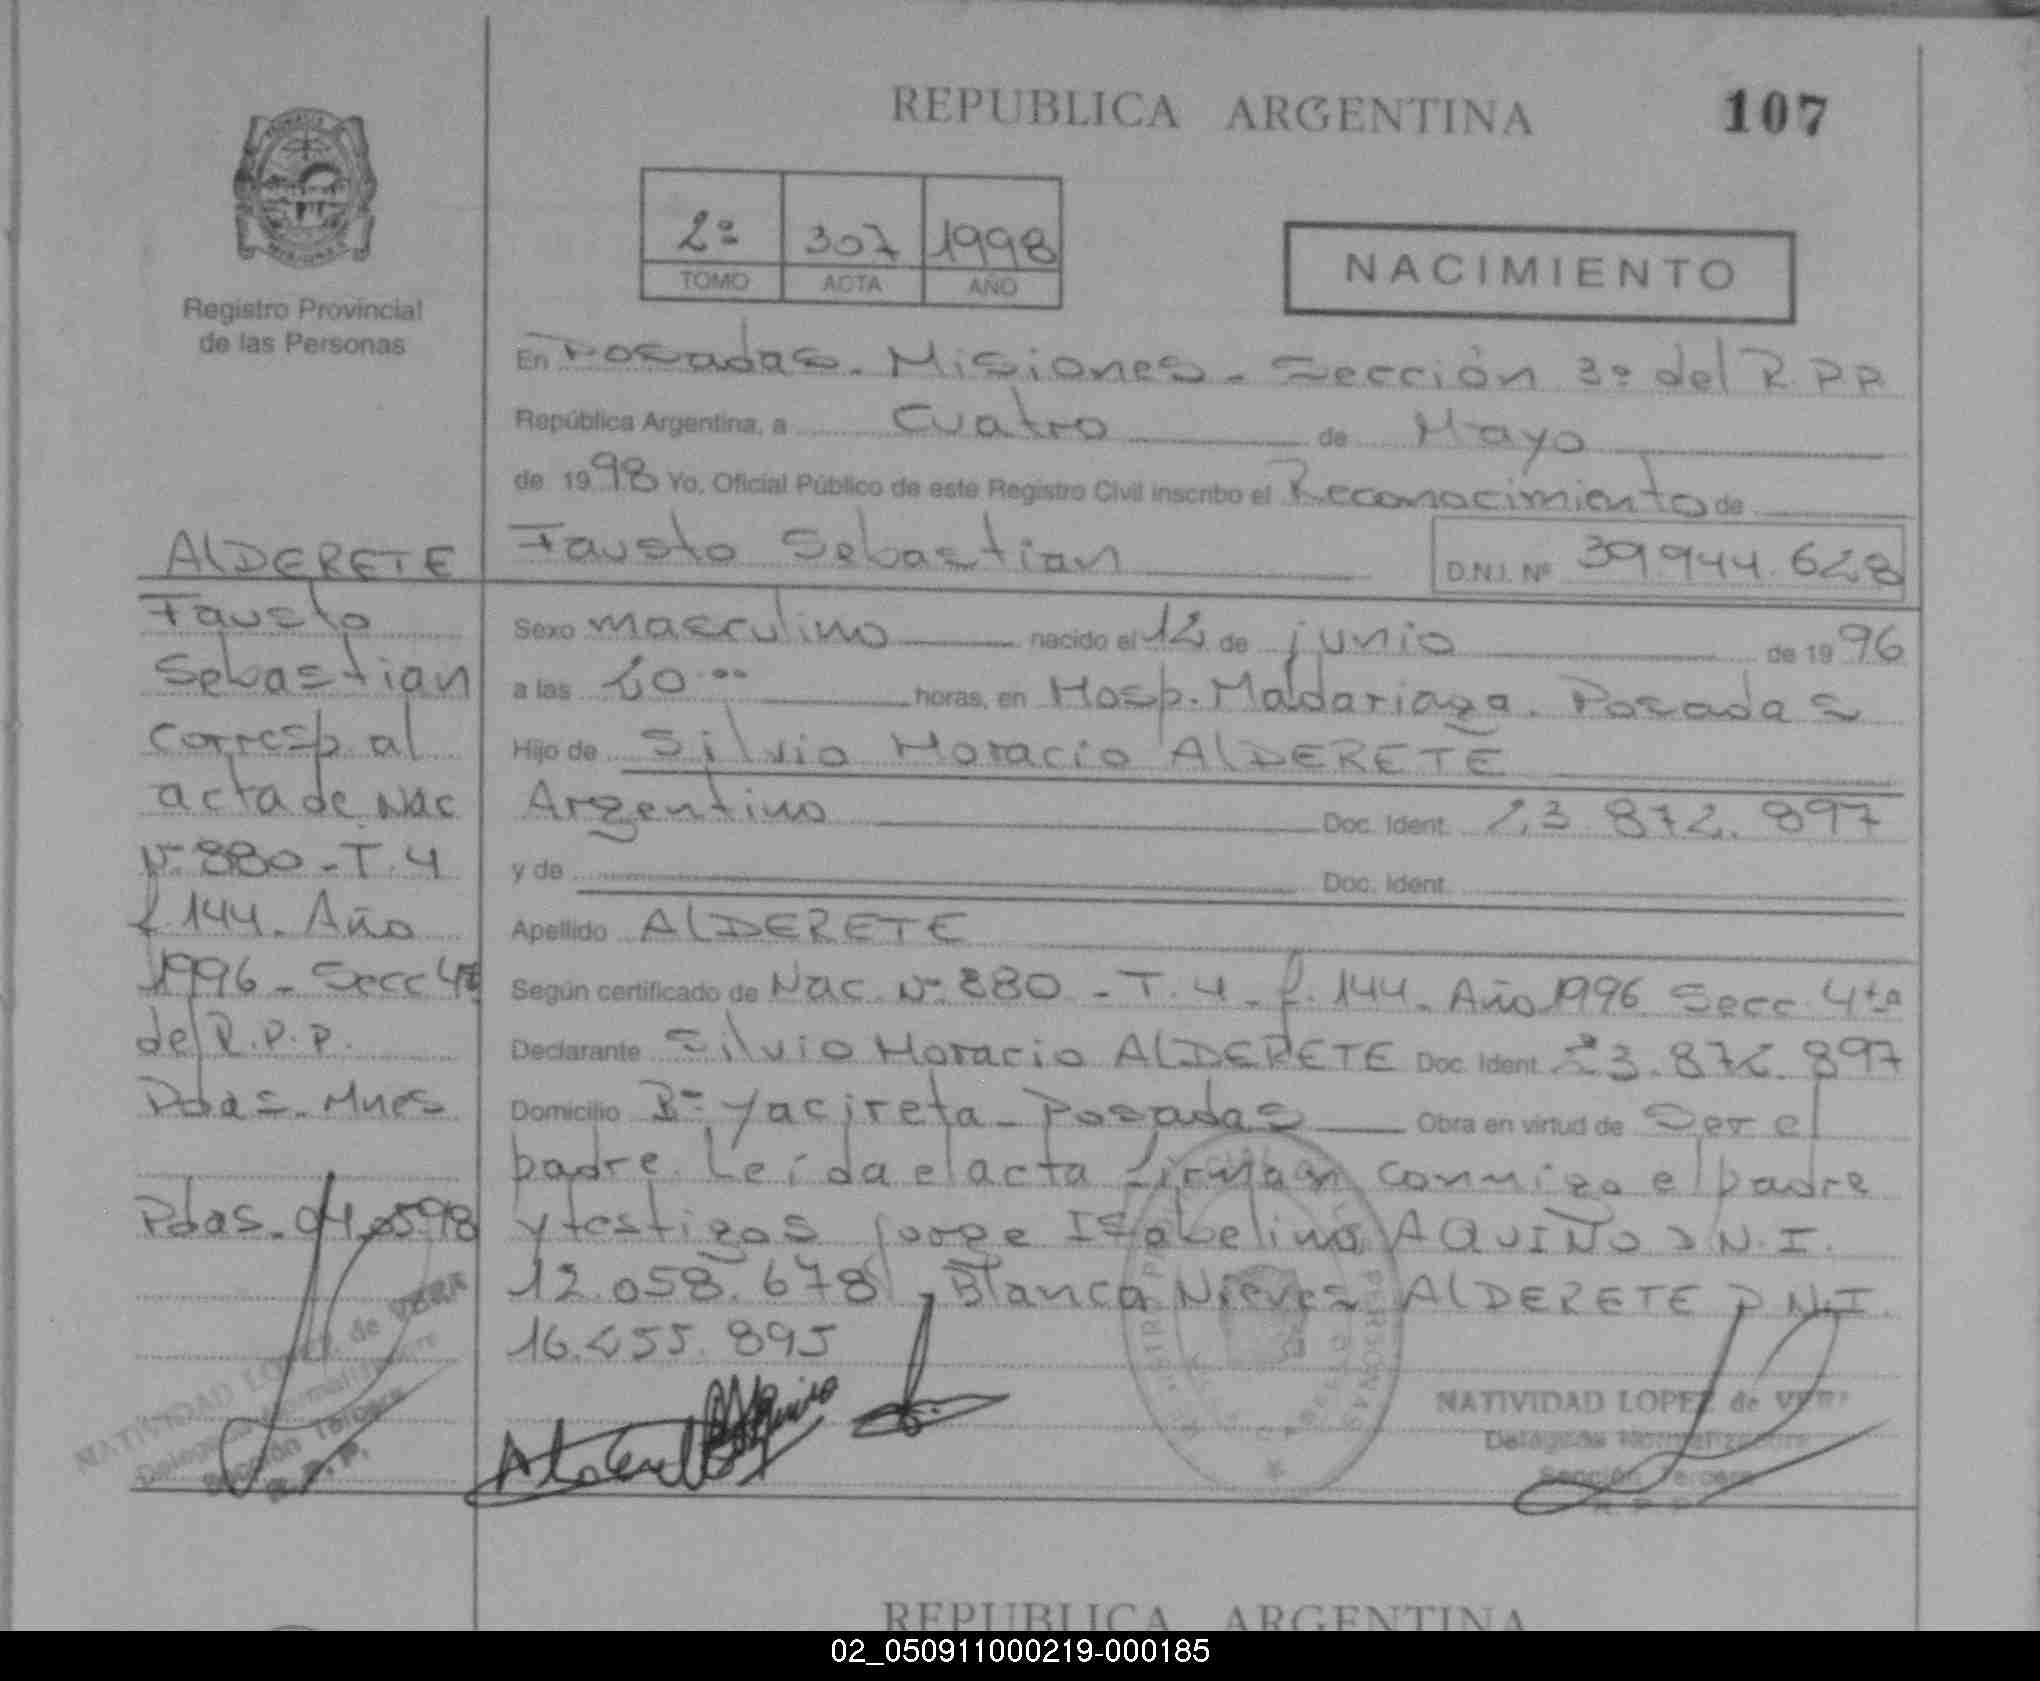 REPUBLICA ARGENTINA 107
2º 307 1998
TOMO ACTA AÑO
NACIMIENTO
Registro Provincial
de las Personas
En Posadas - Misiones - Sección 3º del R.P.P.
República Argentina, a Cuatro de Mayo
de 1998 Yo, Oficial Público de este Registro Civil inscribo el Reconocimiento de
Fausto Sebastian D.N.I. Nº 39.944.628
Sexo masculino nacido el 12 de junio de 1996
a las 20.00 horas, en Hosp. Madariaga. Posadas
Hijo de Silvio Horacio AlDERETE
Argentino Doc. Ident. 23.872.897
y de Doc. Ident.
Apellido AlDERETE
Según certificado de Nac. Nº 880 - T. 4 - f. 144. Año 1996 Secc. 4ta
Declarante Silvio Horacio AlDERETE Doc. Ident. 23.872.897
Domicilio Bº Yacireta - Posadas Obra en virtud de Ser el
padre. Leída el acta firman conmigo el padre
y testigos Jorge Isabelino AQUINO D.N.I.
12.058.678, Blanca Nieves AlDERETE D.N.I.
16.455.895
AlDERETE
Fausto
Sebastian
Corresp. al
acta de Nac
Nº 880 - T. 4
f 144. Año
1996 - Secc 4ta
del R.P.P.
Pdas. Mnes
Pdas. 04.05.98
NATIVIDAD LOPEZ de VERA
Delegada Normalizadora
Sección Tercera
R. P. P.
NATIVIDAD LOPEZ de VERA
Delegada Normalizadora
Sección Tercera
R. P. P.
REPUBLICA ARGENTINA
02_050911000219-000185